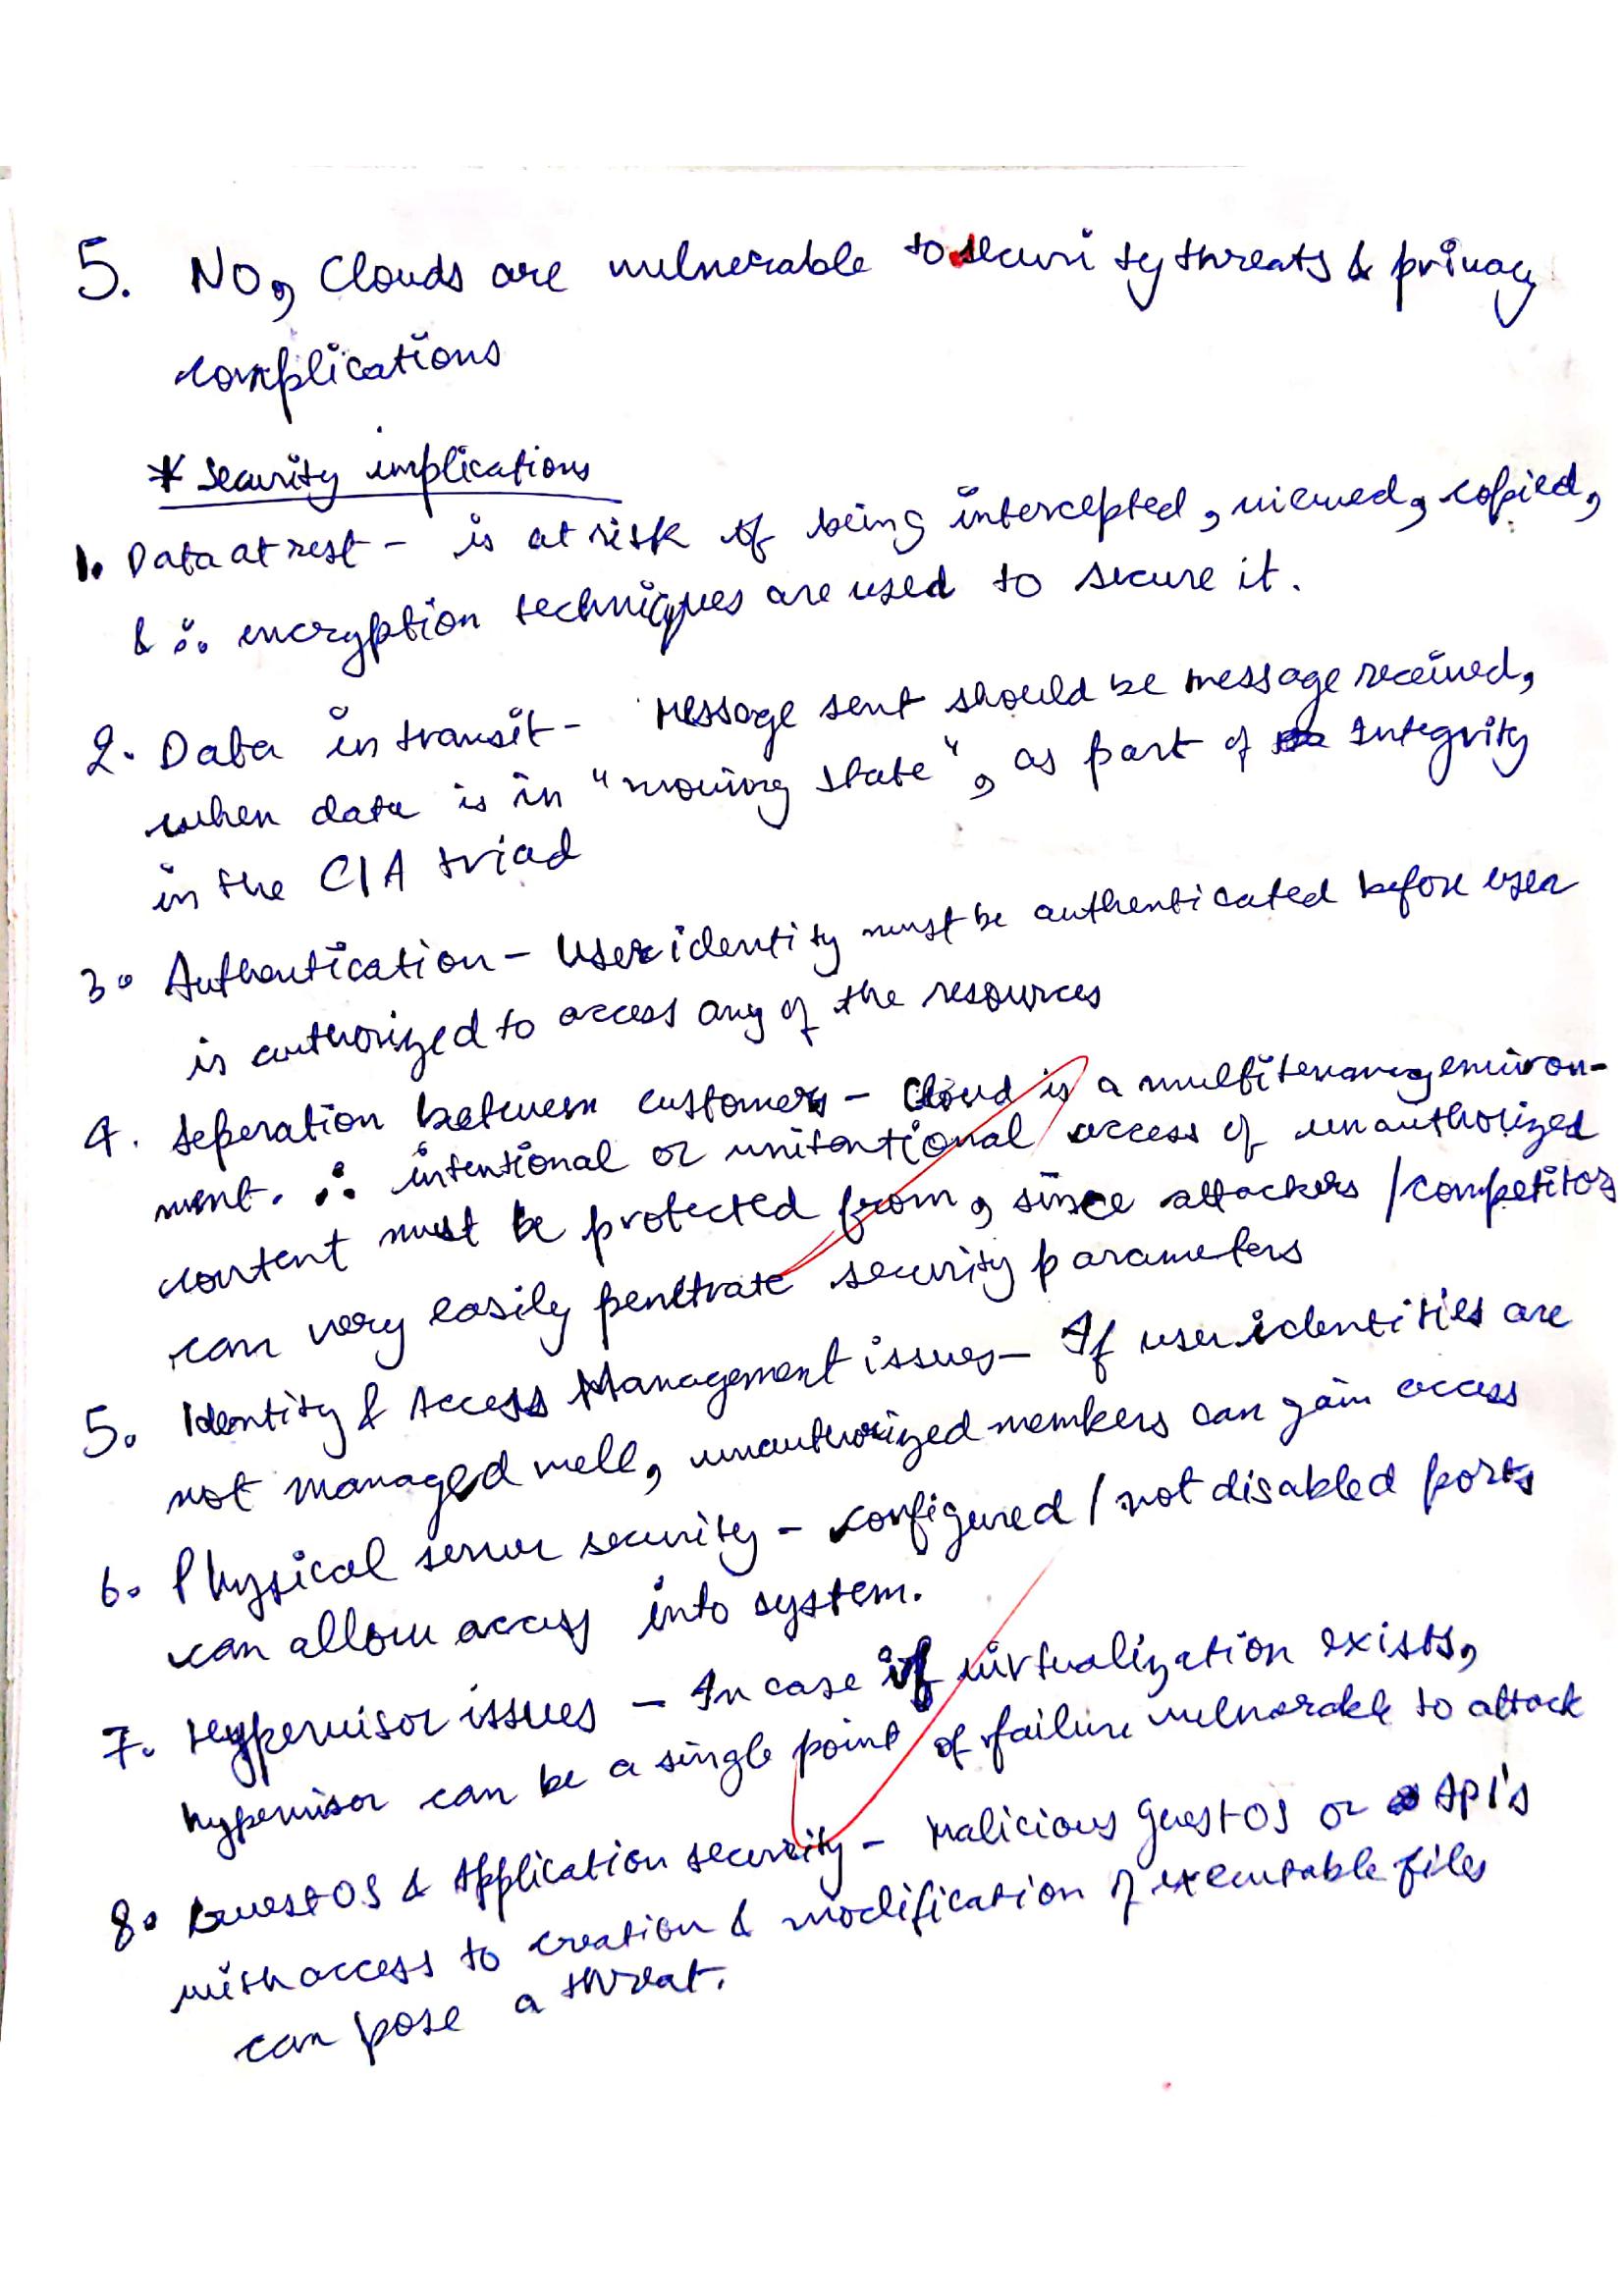 5. No, Clouds are vulnerable to security threats & privacy
complications
* Security implications
1. Data at rest - is at risk of being intercepted, viewed, copied,
& ∴ encryption techniques are used to secure it.
2. Data in transit - Message sent should be message received,
when data is in "moving state", as part of Integrity
in the CIA triad
3. Authentication - User identity must be authenticated before user
is authorized to access any of the resources
4. Seperation between customers - Cloud is a multitenancy environ-
ment. ∴ intentional or unitentional access of unauthorized
content must be protected from, since attackers / competitors
can very easily penetrate security parameters
5. Identity & Access Management issues - If user identities are
not managed well, unauthorized members can gain access
6. Physical server security - configured / not disabled ports
can allow access into system.
7. Hypervisor issues - In case if virtualization exists,
hypervisor can be a single point of failure vulnerable to attack
8. Guest OS & Application security - Malicious guest OS or API's
with access to creation & modification of executable files
can pose a threat.